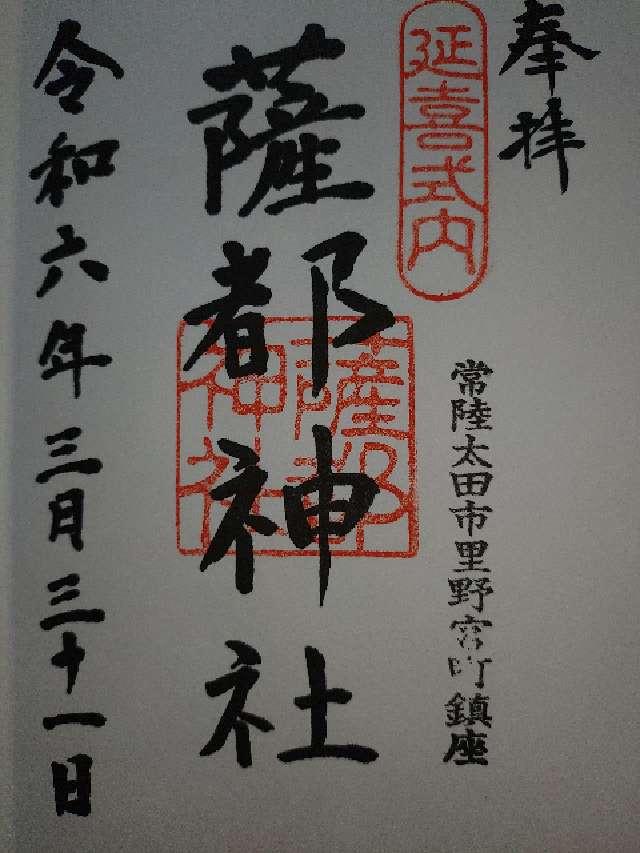 奉拝
延喜式内
常陸太田市里野宮町鎮座
薩都神社
薩都神社
令和六年三月三十一日